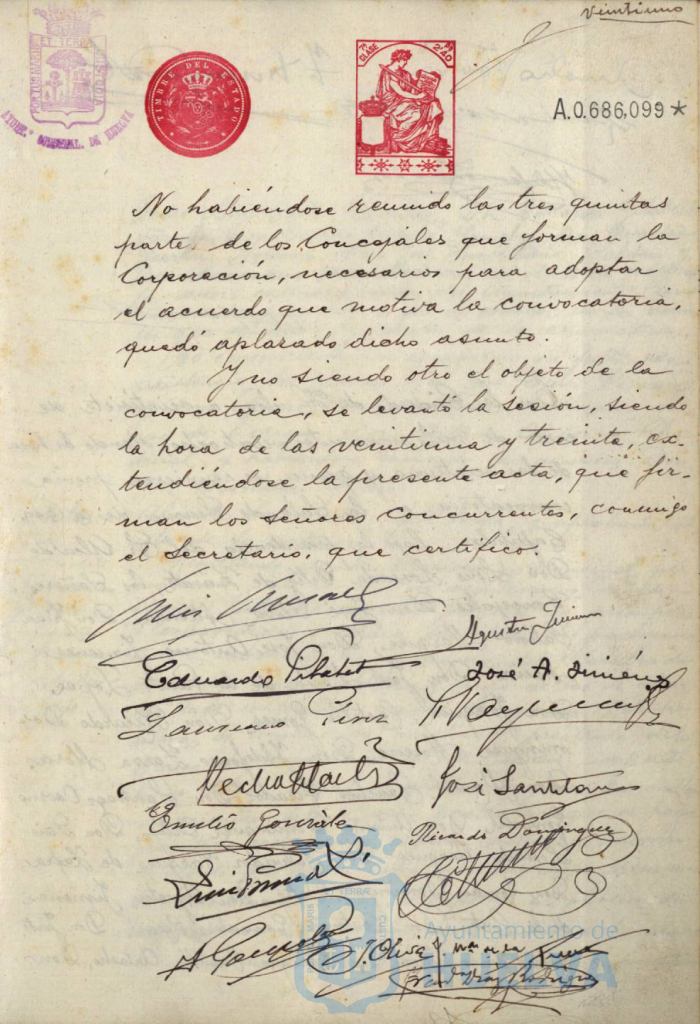 Veintiuno
TIMBRE DEL ESTADO
CLASE 7ª
A.0.686,099*
No habiéndose reunido las tres quintas
partes de los Concejales que forman la
Corporación, necesarios para adoptar
el acuerdo que motiva la convocatoria,
quedó aplazado dicho asunto.
Y no siendo otro el objeto de la
convocatoria, se levantó la sesión, siendo
la hora de las veintiuna y treinta, ex-
tendiéndose la presente acta, que fir-
man los Señores concurrentes, conmigo
el Secretario, que certifico.
Agustín
Eduardo José A. Jiménez
Laureano Pérez
José
Emilio González Ricardo Domínguez
J. Oliva
Ayuntamiento de
HUELVA